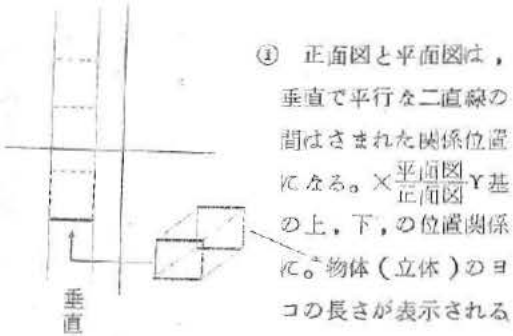 ① 正面図と平面図は，
垂直で平行な二直線の
間はさまれた関係位置
になる。×平面図/正面図Y基
の上，下，の位置関係
に。物体（立体）のヨ
コの長さが表示される
垂直